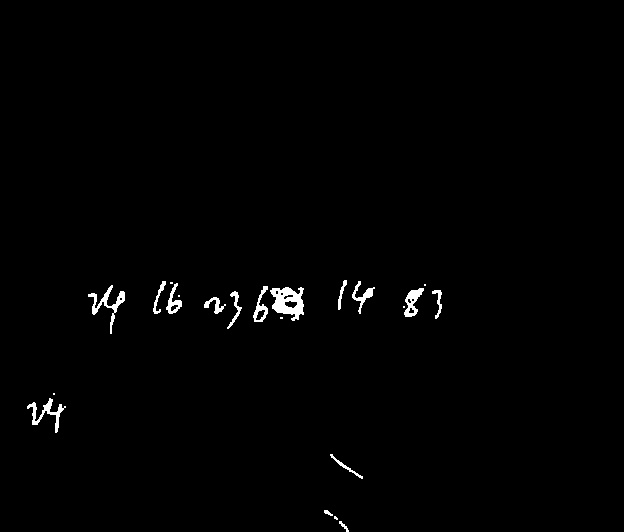 24 16 23 6 14 83
24